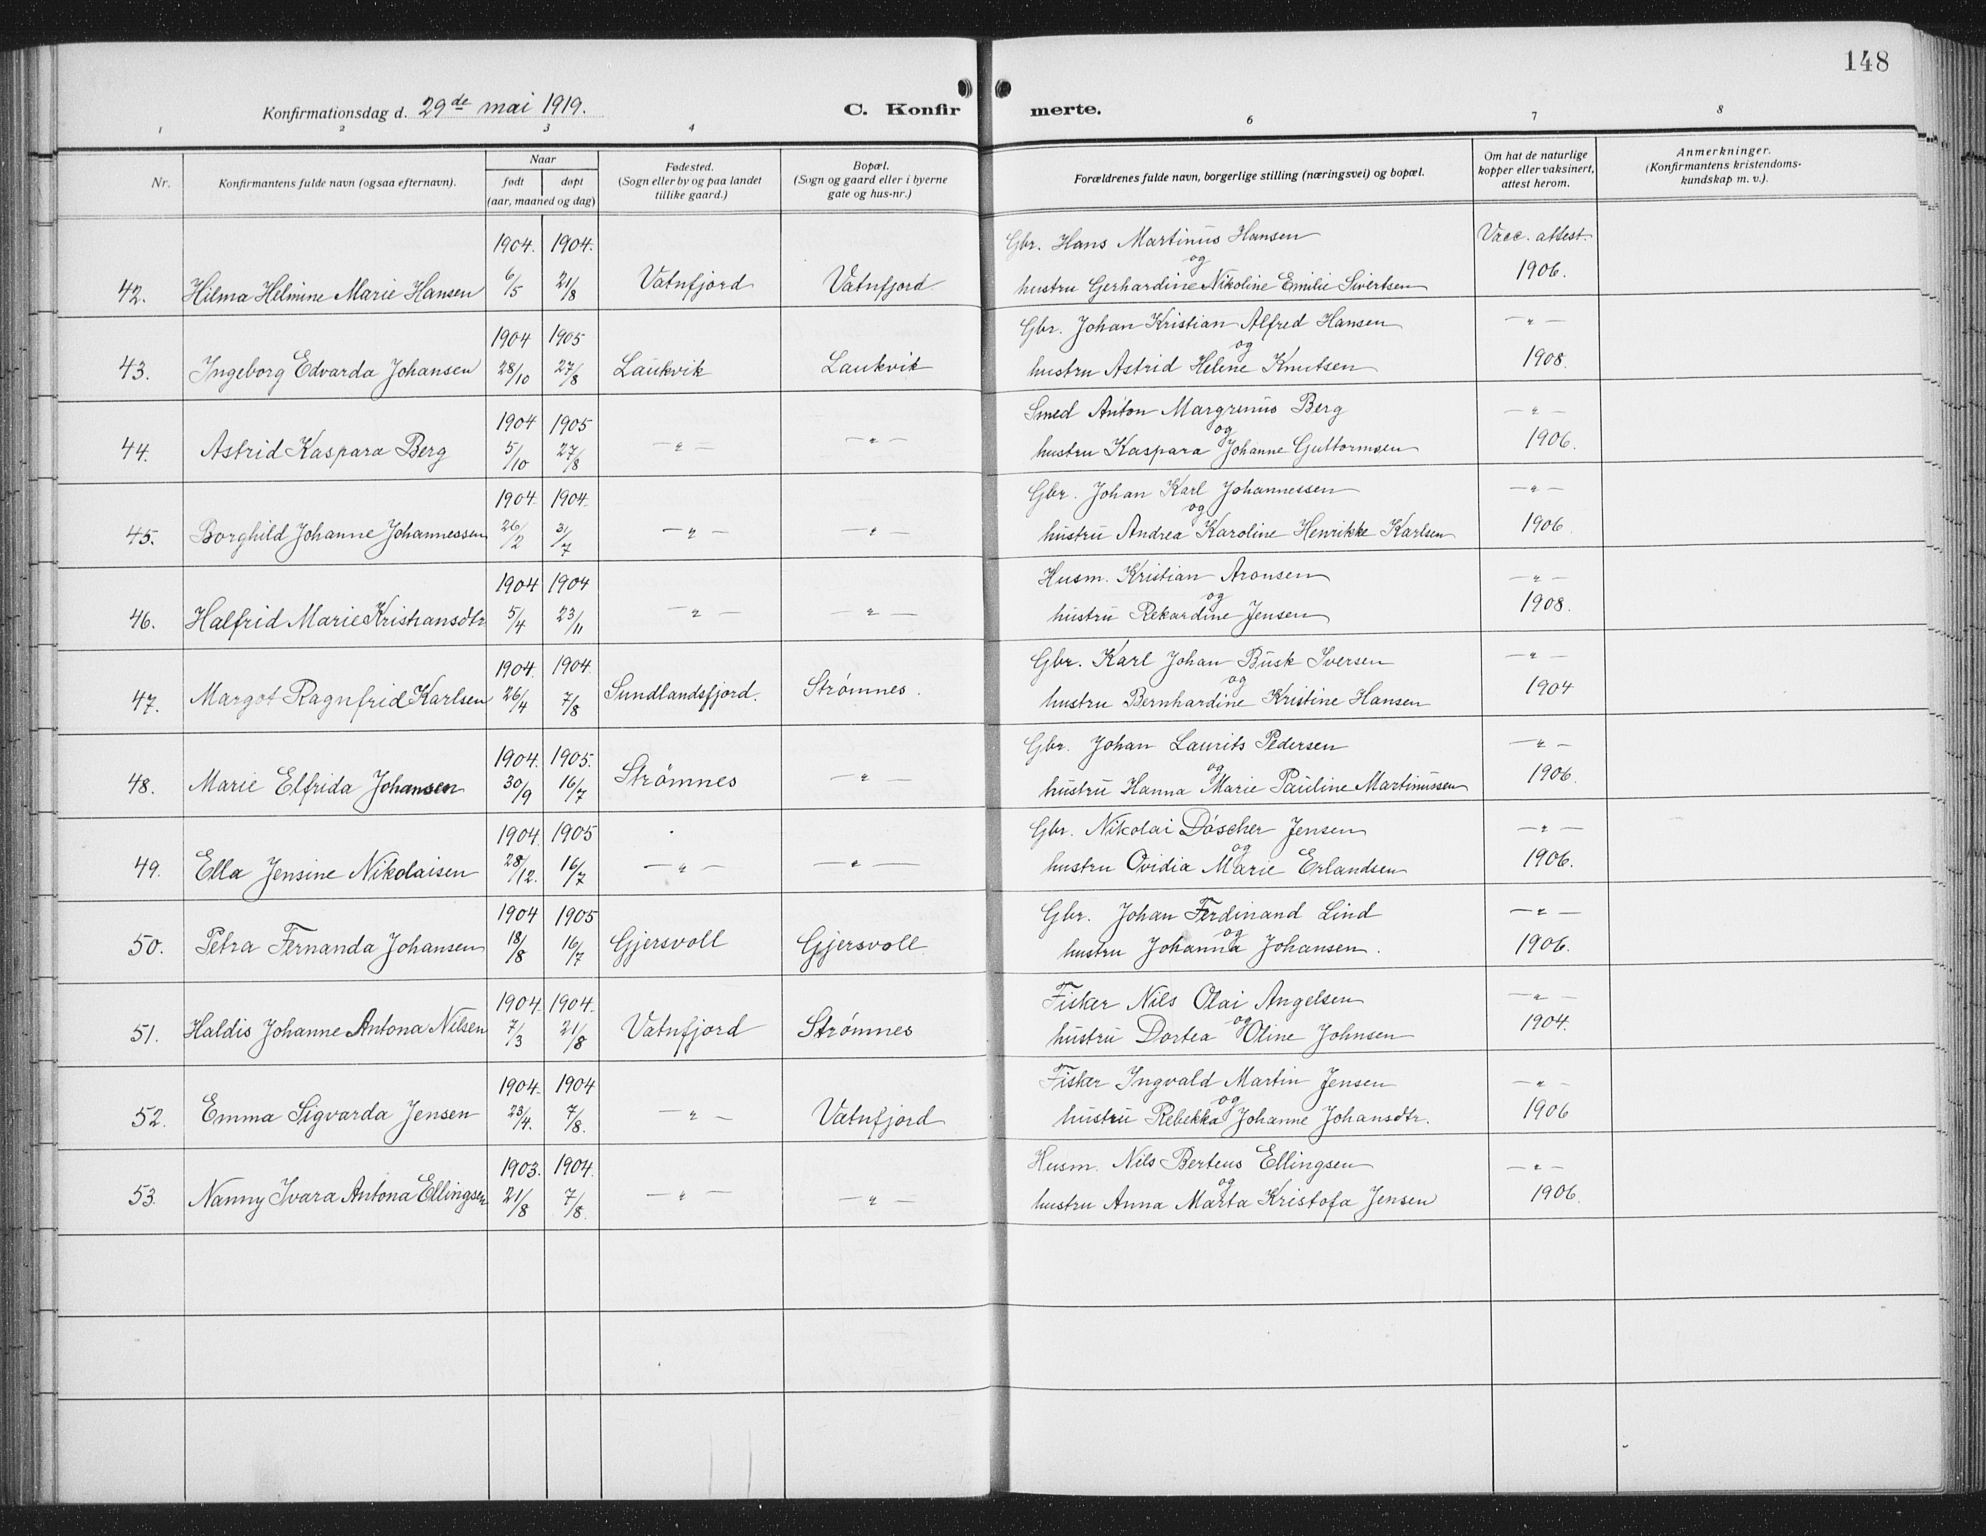 148
Konfirmationsdag d. 29de mai 1919. C. Konfir merte.
1 2 3 4 6 7 8
Nr. Konfirmantens fulde navn (ogsaa efternavn). Naar født døpt (aar, maaned og dag) Fødested. (Sogn eller by og paa landet tillike gaard.) Bopæl. (Sogn og gaard eller i byerne gate og hus-nr.) Forældrenes fulde navn, borgerlige stilling (næringsvei) og bopæl. Om hat de naturlige kopper eller vaksinert, attest herom. Anmerkninger. (Konfirmantens kristendoms-kundskap m. v.).
1904. 1904. Gbr. Hans Martinus Hansen Vacc. attest.
42. Hilma Helmine Marie Hansen 6/5 21/8 Vatnfjord Vatnfjord og hustru Gerhardine Nikoline Emilie Sivertsen 1906.
1904 1905 Gbr. Johan Kristian Alfred Hansen — " —
43. Ingeborg Edvarda Johansen 28/10 27/8 Laukvik Laukvik og hustru Astrid Helene Knutsen 1908.
1904 1905 Smed Anton Margrenus Berg — " —
44. Astrid Kaspara Berg 5/10 27/8 — " — — " — og hustru Kaspara Johanne Guttormsen 1906.
1904. 1904. Gbr. Johan Karl Johannessen — " —
45. Borghild Johanne Johannessen 26/2 31/7 — " — — " — og hustru Andrea Karoline Henrikke Karlsen 1906.
1904 1904 Husm. Kristian Aronsen — " —
46. Halfrid Marie Kristiansdtr 5/4 23/11 — " — — " — og hustru Rekardine Jensen 1908.
1904. 1904. Gbr. Karl Johan Busk Iversen — " —
47. Margot Ragnfrid Karlsen 26/4 7/8 Sundlandsfjord. Strømnes. og hustru Bernhardine Kristine Hansen 1904
1904. 1905. Gbr. Johan Laurits Pedersen — " —
48. Marie Elfrida Johansen 30/9 16/7 Strømnes — " — og hustru Hanna Marie Pauline Martinussen 1906.
1904. 1905 Gbr. Nikolai Döscher Jensen — " —
49. Ella Jensine Nikolaisen 28/12. 16/7 — " — — " — og hustru Ovidia Marie Erlandsen 1906.
1904 1905 Gbr. Johan Ferdinand Lind — " —
50. Petra Fernanda Johansen 18/8 16/7 Gjersvoll Gjersvoll og hustru Johanna Johansen. 1906.
1904. 1904. Fisker Nils Olai Angelsen — " —
51. Haldis Johanne Antona Nilsen 7/3 21/8 Vatnfjord Strømnes og hustru Dortea Oline Johnsen 1904.
1904. 1904 Fisker Ingvald Martin Jensen — " —
52. Emma Sigvarda Jensen 23/4. 7/8. — " — Vatnfjord og hustru Rebekka Johanne Johansdtr. 1906
1903. 1904. Husm. Nils Berteus Ellingsen — " —
53. Nanny Ivara Antona Ellingsen 21/8 7/8. — " — — " — og hustru Anna Marta Kristofa Jensen 1906.